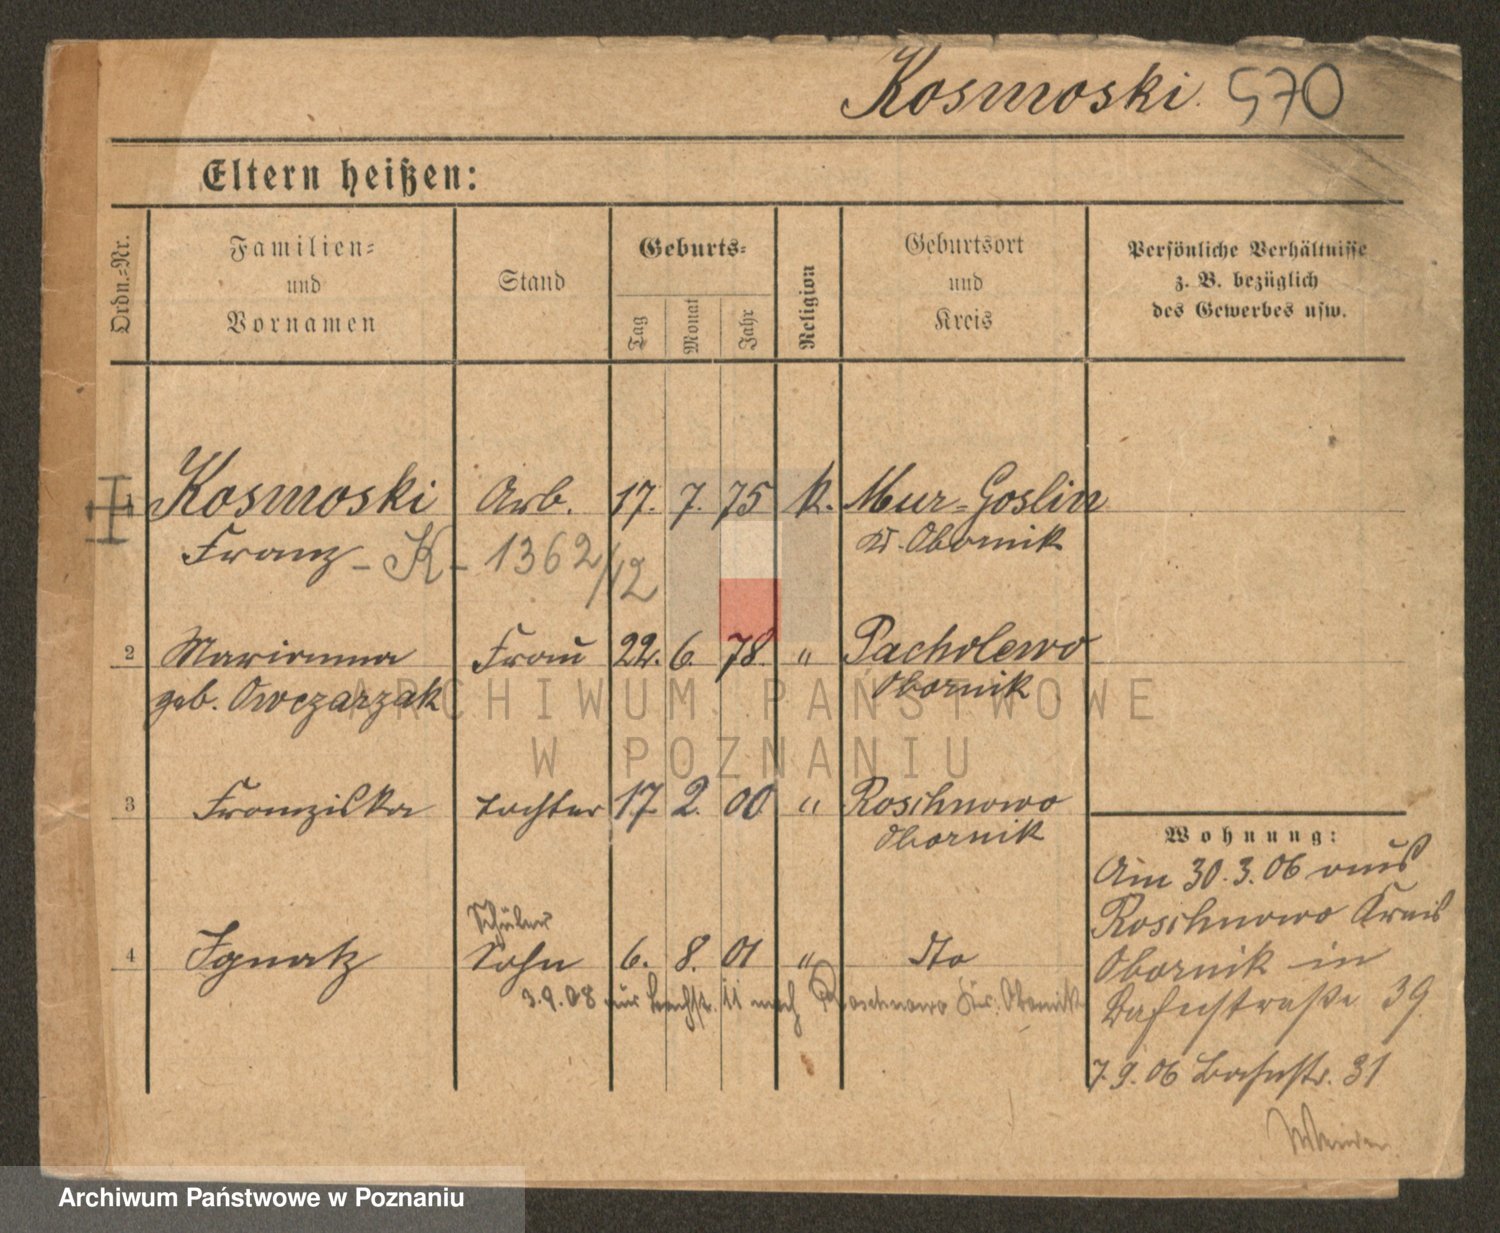 Kosmoski. 570
Eltern heißen:
Ordn.-Nr.
Familien-
und
Vornamen
Stand
Geburts-
Tag
Monat
Jahr
Religion
Geburtsort
und
Kreis
Persönliche Verhältnisse
z. B. bezüglich
des Gewerbes usw.
1 Kosmoski Arb. 17. 7. 75 k. Mur-Goslin
Franz - K - 1362/12 Kr. Obornik
2 Marianna Frau 22. 6. 78. " Pacholewo
geb. Owczarzak Obornik
3 Franziska Tochter 17 2. 00 " Roschnowo
Obornik
Schüler
4 Ignatz Sohn 6. 8. 01 " dto
3.9.08 nach Roschnowo Kr. Obornik
Wohnung:
Am 30.3.06 aus
Roschnowo Kreis
Obornik in
Bahnstraße 39
7.9.06 Bahnstr. 31
ARCHIWUM PAŃSTWOWE
W POZNANIU
Archiwum Państwowe w Poznaniu